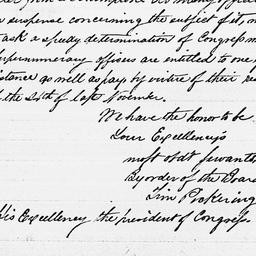 in suspense concerning the subject of it, 
ask a speedy determination of Congress
supernumerary officers are entitled to one
istance as well as pay by virtue of their
of the 24th of last November.
We have the honor to be
Your Excellency's
most obdt servants
By order of the Board
Tim Pickering
His Excellency the president of Congress.